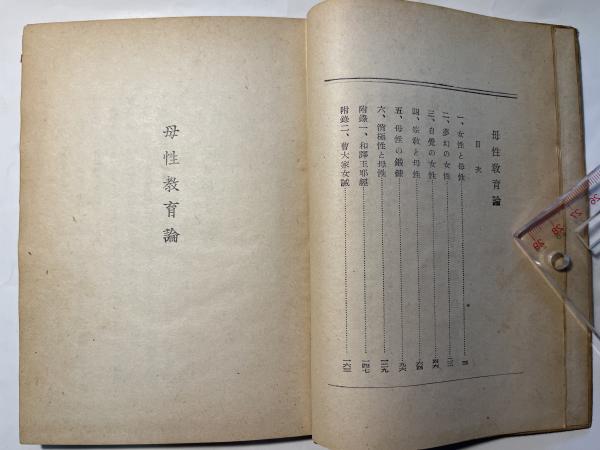 母性教育論
目次
一、女性と母性
二、夢幻の女性
三、自覺の女性
四、宗教と母性
五、母性の鍛錬
六、消極性と母性
附錄一、和譯玉耶經
附錄二、曹大家女誡
一六三
一四七
一二九
九六
六四
四六
母性教育論